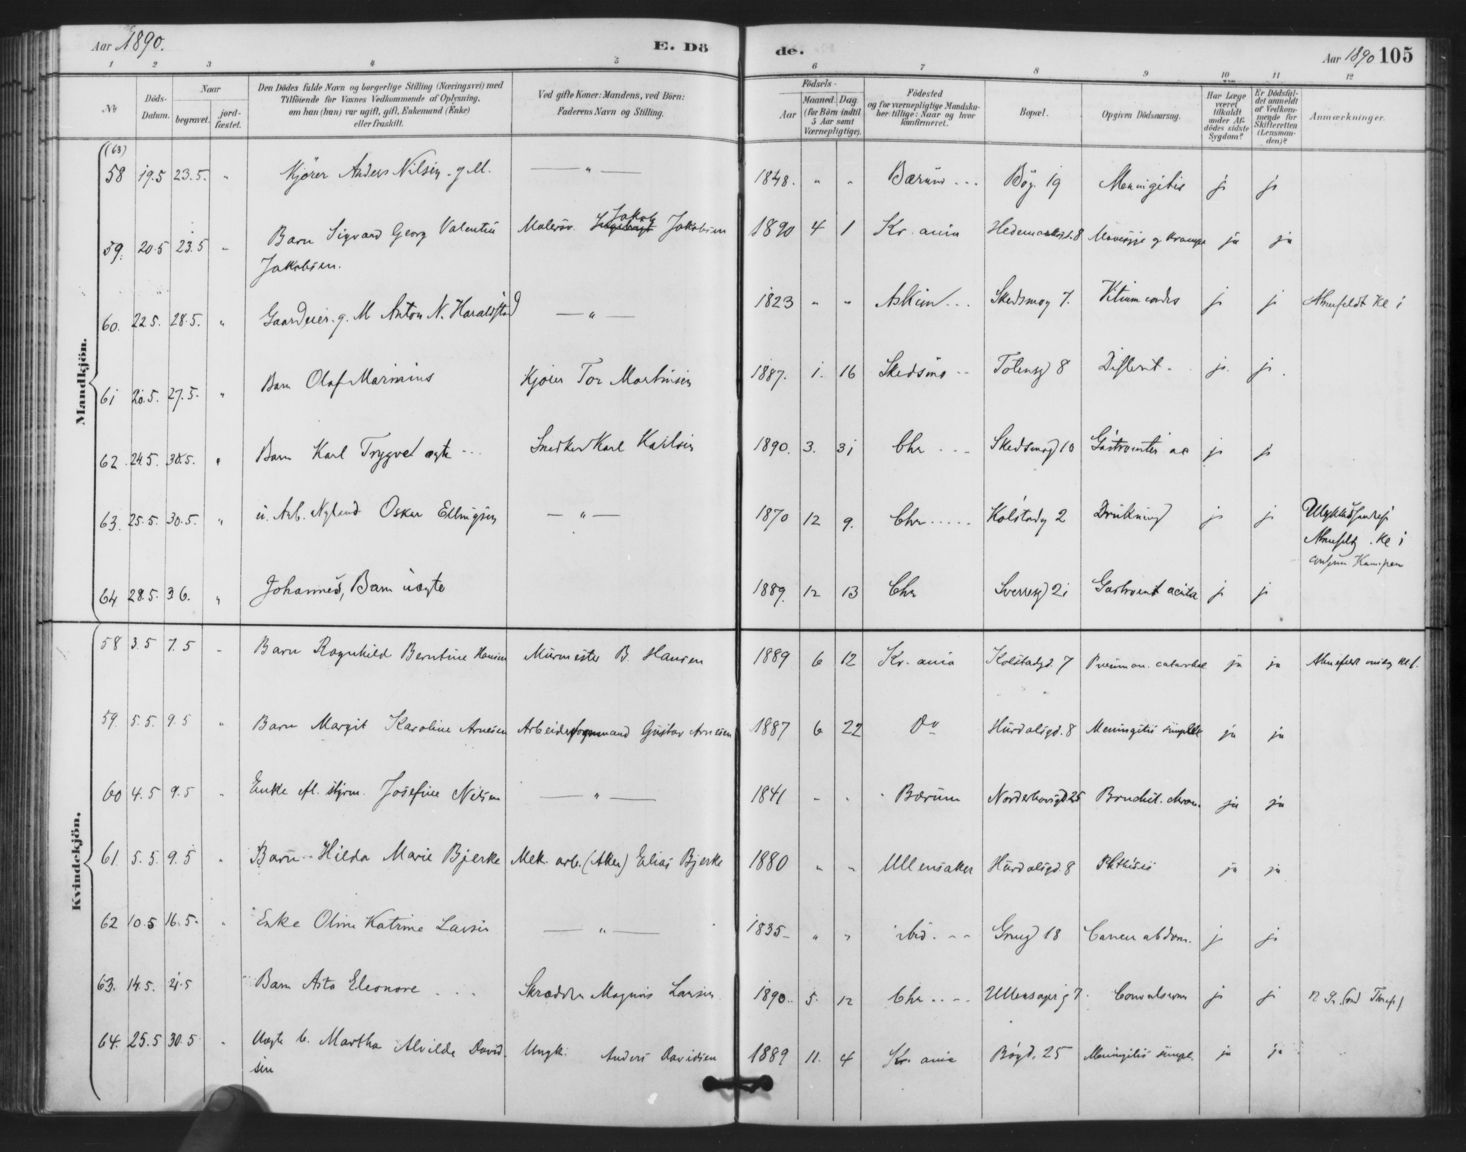 Aar 1890. E. Dö de. Aar 1890 105
1 2 3 4 5 6 7 8 9 10 11 12
№ Döds-Datum. Naar begravet. jord-fæstet. Den Dödes fulde Navn og borgerlige Stilling (Næringsvei) med Tilföiende for Voxnes Vedkommende af Oplysning, om han (hun) var ugift, gift, Enkemand (Enke) eller fraskilt. Ved gifte Koner: Mandens, ved Börn: Faderens Navn og Stilling. Födsels- Aar Maaned. Dag (for Börn indtil 5 Aar samt Værnepligtige). Födested og for værnepligtige Mandskaber tillige: Naar og hvor konfirmeret. Bopæl. Opgiven Dödsaarsag. Har Læge været tilkaldt under Afdödes sidste Sygdom? Er Dödsfaldet anmeldt af Vedkommende for Skifteretten (Lensmanden)? Anmærkninger.
Mandkjön.
(63)
58 19.5 23.5. " Kjører Anders Nilsen. g. M. — " — 1848. " " Bærum Bög. 19 Meningitis ja ja
59. 20.5 23.5 " Barn Sigvard Georg Valentin Malersv. Jakob Jakobsen 1890 4 1 Kr. ania Hedemarksgd. 8 og Krampe ja ja
Jakobsen.
60. 22.5. 28.5. " Gaardeier. g. M Anton N. Haraldstad — " — 1823 " " Askim Skedsmog 7. Vitium cordis ja ja Kl i
61 20.5. 27.5. " Barn Olaf Marinius Kjører Tor Martinsen 1887. 1. 16 Skedsmo Totensg 8 Difterit ja ja
62 24.5. 30.5. " Barn Karl Trygve ægte Snedker Karl Karlsen 1890. 3. 31 Chr Skedsmog 10 Gastroenter. ac ja ja
63. 25.5. 30.5. " u. Arb. Nyland Oskar Ellingsen — " — 1870 12 9. Chr Kolstadg 2 Drukning ja ja
Kl i
64 28.5. 3 6. " Johannes, Barn uægte 1889. 12 13 Chr Sverresg 21 Gastroent acuta ja ja
Kvindekjön.
58 3.5 7.5 " Barn Ragnhild Berntine Hansen Murmester B. Hansen 1889 6 12 Kr. ania Kolstadgd. 7 Pneumon. catarrhal ja ja
59 5.5 9.5 " Barn Margit Karoline Arnesen Arbeidsformand Gustav Arnesen 1887 6 22 Do Hurdalsgd. 8 Meningitis simplex ja ja
60 4.5 9.5 " Enke efl. styrm. Josefine Nilsen — " — 1841 " " Bærum Norderhovsgd 25 Bronchit. chron. ja ja
61 5.5. 9.5 " Barn Hilda Marie Bjerke Mek. arb. (Aker) Elias Bjerke 1880 " " Ullensaker Hurdalsgd. 8 Phthisis ja ja
62 10.5 16.5. " Enke Oline Katrine Larsen — " — 1835 " " ibid. Grueg 18 Cancer abdom. ja ja
63. 14.5. 21.5 Barn Asta Eleonore Skrædder Magnus Larsen 1890 5. 12 Chr Ullensagerg 7. Convulsiones ja ja
64. 25.5 30.5 " Uægte b. Martha Alvilde David- Ungk. Anders Davidsen 1889 11. 4 Kr. ania Bögd. 25 Meningitis simpl. ja ja
sen